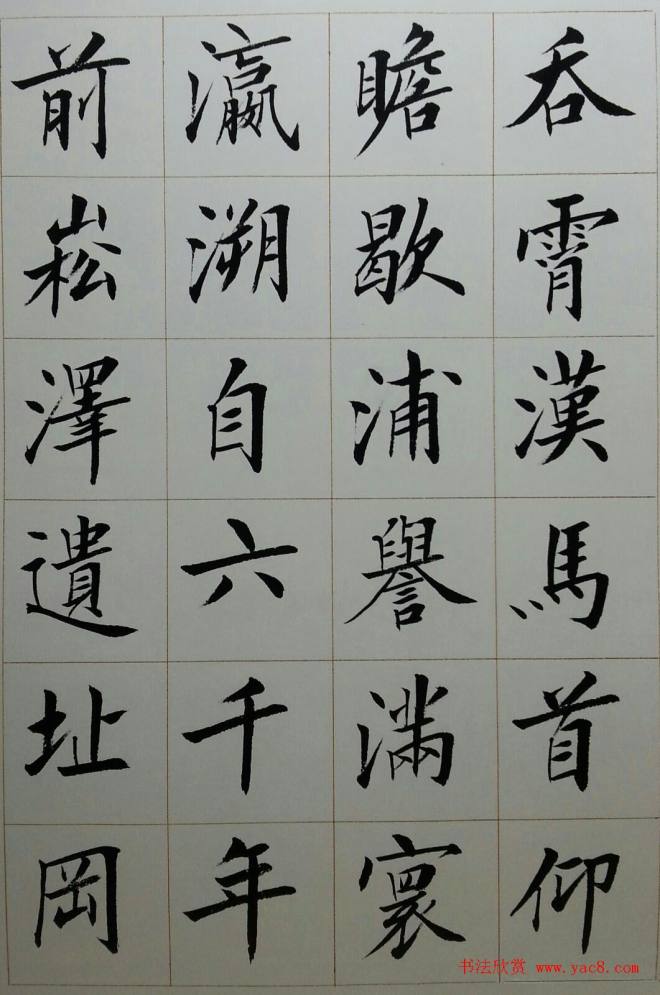 吞霄漢馬首仰
瞻歇浦譽滿寰
瀛溯自六千年
前崧澤遺址岡
书法欣赏 www.yac8.com